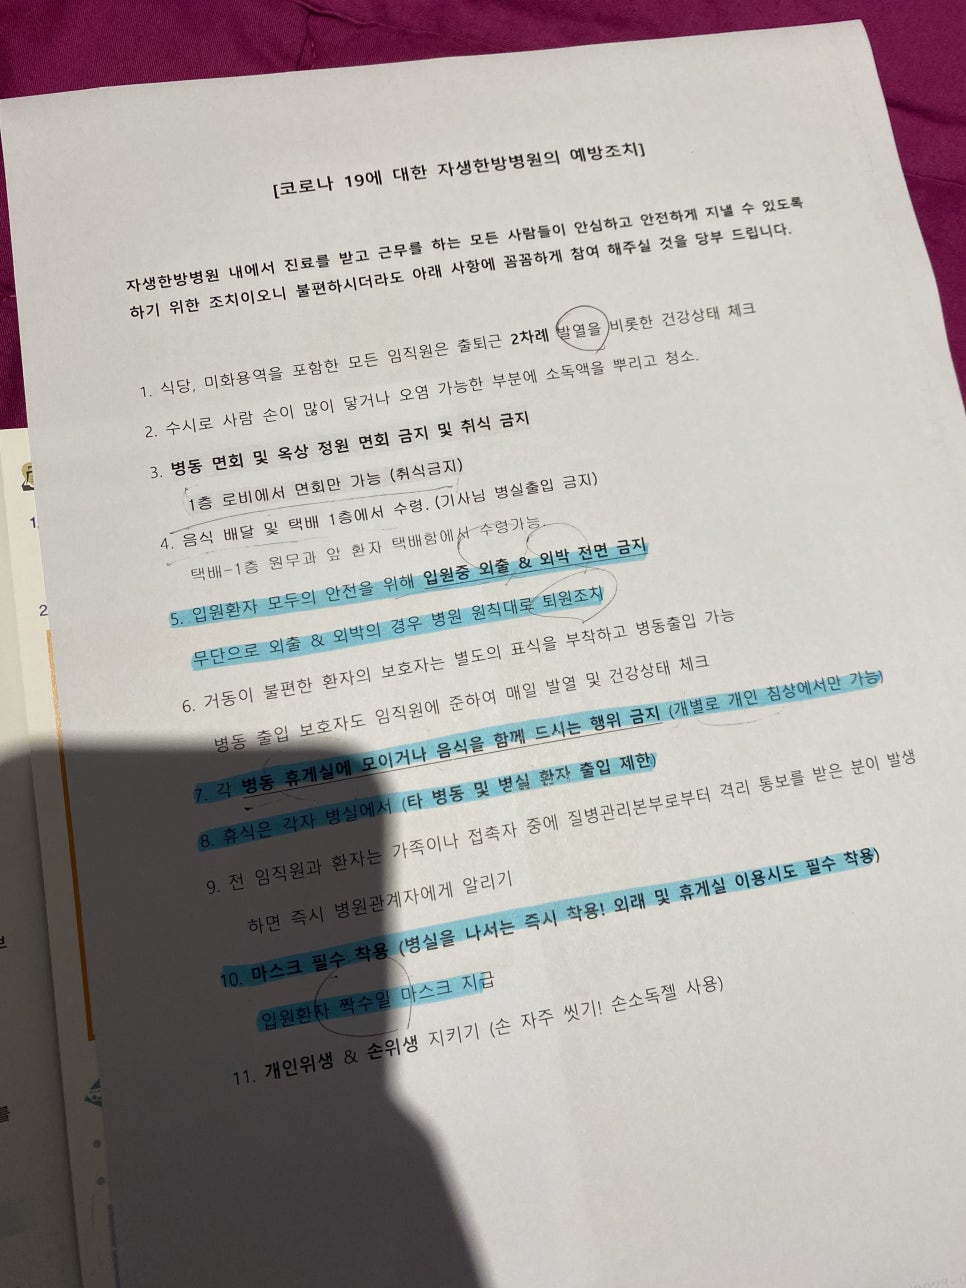 [코로나 19에 대한 자생한방병원의 예방조치]
자생한방병원 내에서 진료를 받고 근무를 하는 모든 사람들이 안심하고 안전하게 지낼 수 있도록
하기 위한 조치이오니 불편하시더라도 아래 사항에 꼼꼼하게 참여 해주실 것을 당부 드립니다.
1. 식당, 미화용역을 포함한 모든 임직원은 출퇴근 2차례 발열을 비롯한 건강상태 체크
2. 수시로 사람 손이 많이 닿거나 오염 가능한 부분에 소독액을 뿌리고 청소.
3. 병동 면회 및 옥상 정원 면회 금지 및 취식 금지
1층 로비에서 면회만 가능 (취식금지)
4. 음식 배달 및 택배 1층에서 수령. (기사님 병실출입 금지)
택배-1층 원무과 앞 환자 택배함에서 수령가능.
5. 입원환자 모두의 안전을 위해 입원중 외출 & 외박 전면 금지
무단으로 외출 & 외박의 경우 병원 원칙대로 퇴원조치
6. 거동이 불편한 환자의 보호자는 별도의 표식을 부착하고 병동출입 가능
병동 출입 보호자도 임직원에 준하여 매일 발열 및 건강상태 체크
7. 각 병동 휴게실에 모이거나 음식을 함께 드시는 행위 금지 (개별로 개인 침상에서만 가능)
8. 휴식은 각자 병실에서 (타 병동 및 병실 환자 출입 제한)
9. 전 임직원과 환자는 가족이나 접촉자 중에 질병관리본부로부터 격리 통보를 받은 분이 발생
하면 즉시 병원관계자에게 알리기
10. 마스크 필수 착용 (병실을 나서는 즉시 착용! 외래 및 휴게실 이용시도 필수 착용)
입원환자 짝수일 마스크 지급
11. 개인위생 & 손위생 지키기 (손 자주 씻기! 손소독젤 사용)
1.
2
를